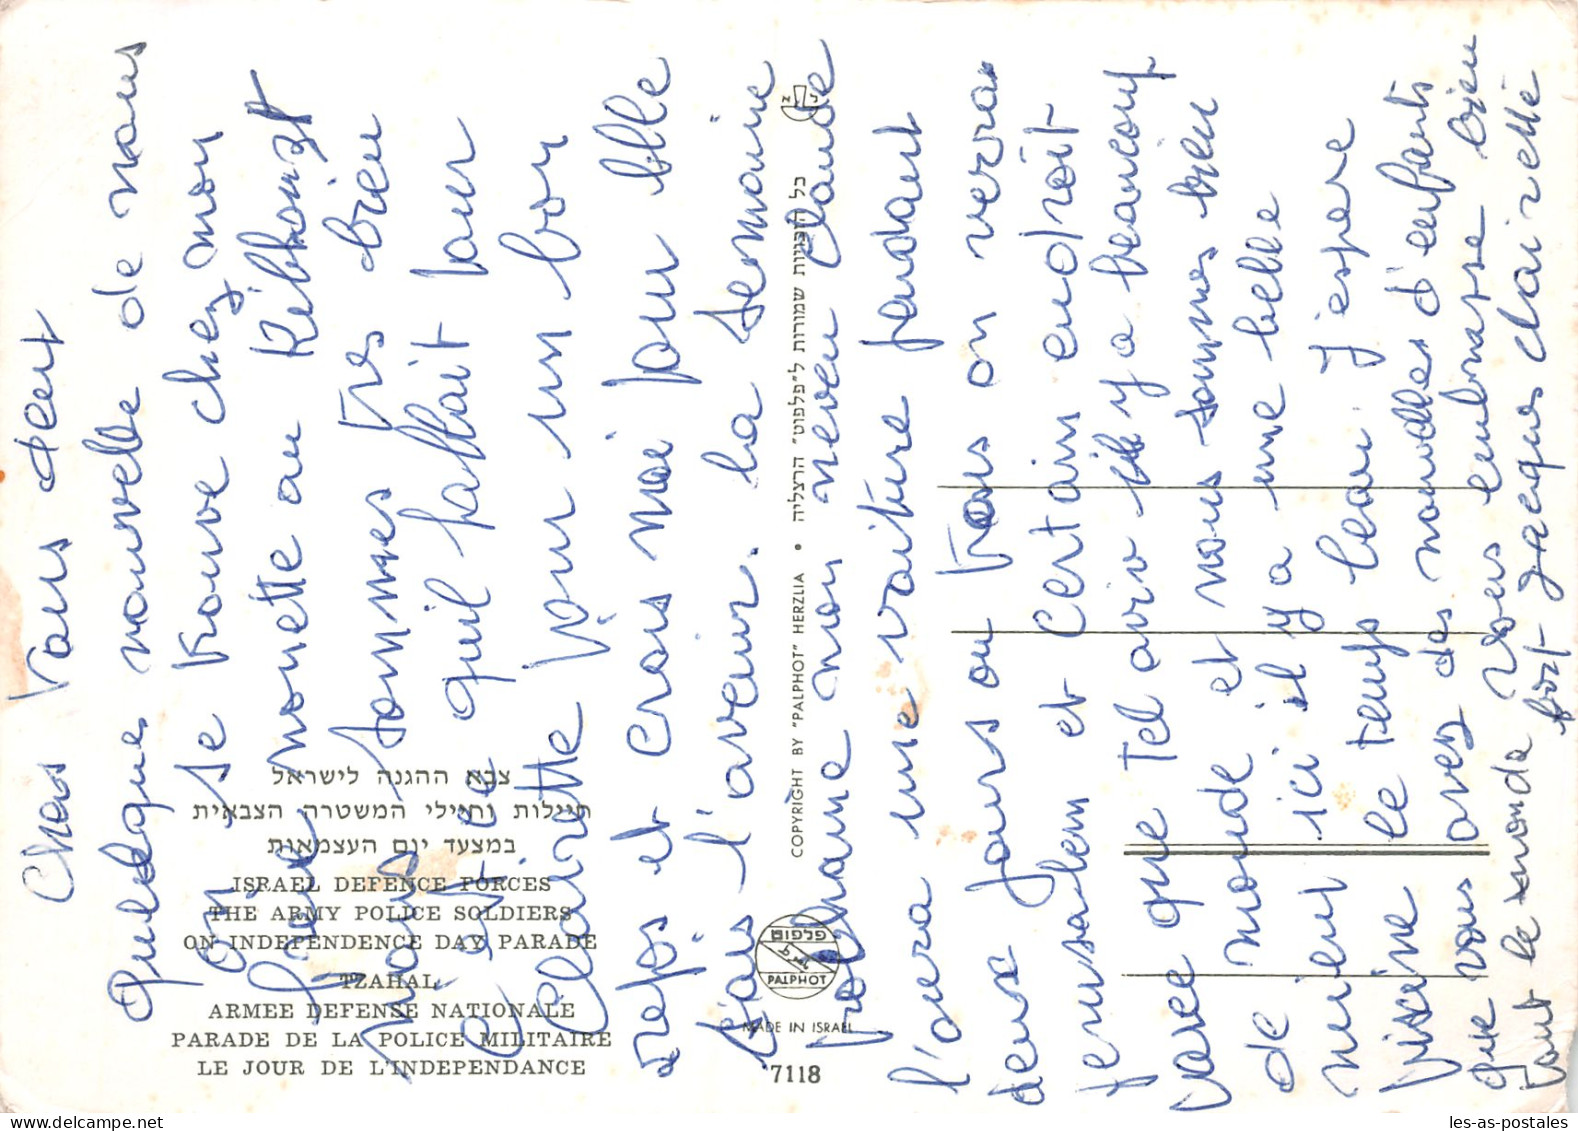 Chers tous deux
Quelques nouvelle de nous
on se trouve chez mon
frere nonette au Kibboust
nous sommes tres bien
c'est ce quil fallait pour
Clairette pour un bon
repos et crois moi pour elle
dans l'avenir. la semaine
prochaine mon neveu Claude
l'aura une voiture pendant
deux jours ou trois on verra
Jerusalem et certain endroit
parce que Tel aviv il y a beaucoup
de monde et nous sommes bien
ici il y a une belle
le temps beau j'espere
piscine
que vous avez des nouvelles d'enfants
tout le monde vous embrasse bien
fort Jacques Clairette
צבא ההגנה לישראל
חיילות וחיילי המשטרה הצבאית
במצעד יום העצמאות
ISRAEL DEFENCE FORCES
THE ARMY POLICE SOLDIERS
ON INDEPENDENCE DAY PARADE
TZAHAL
ARMEE DEFENSE NATIONALE
PARADE DE LA POLICE MILITAIRE
LE JOUR DE L'INDEPENDANCE
COPYRIGHT BY "PALPHOT" HERZLIA • כל הזכויות שמורות ל"פלפוט" הרצליה
פלפוט
PALPHOT
MADE IN ISRAEL
7118
les-as-postales